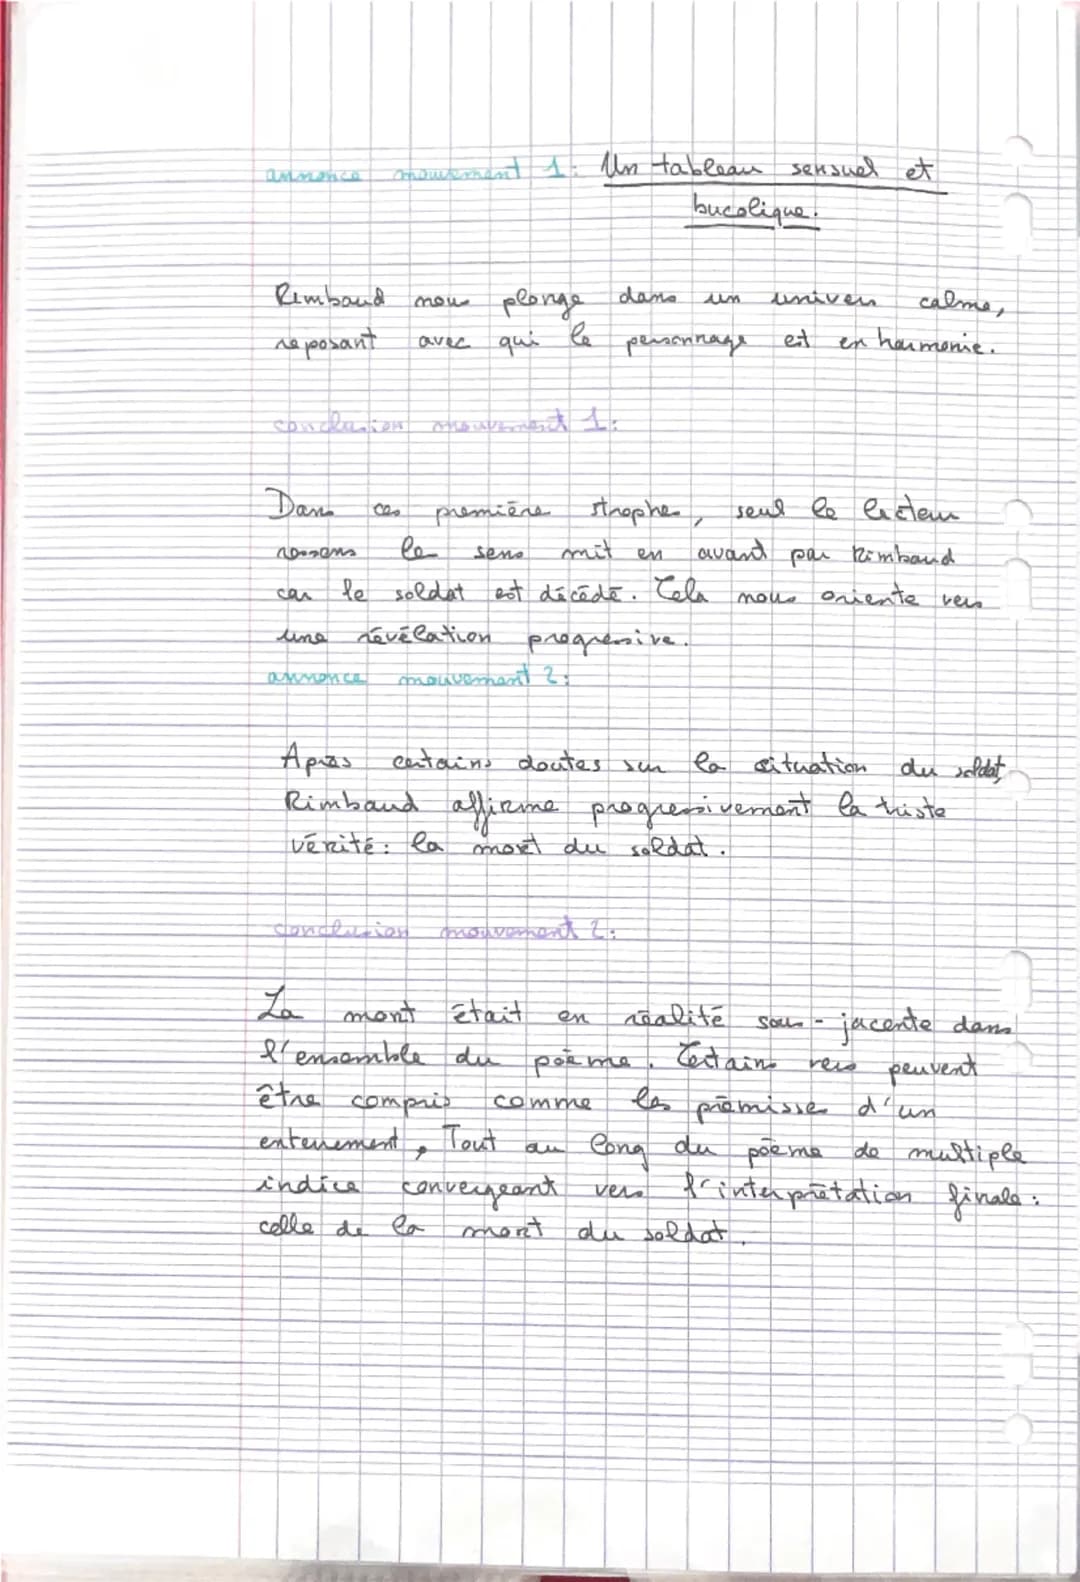 annonce mouvement 1: Un tableau sensuel et
bucolique.
Rimbaud nous plonge dans un univers calme,
reposant avec qui le personnage est en harmonie.
conclusion mouvement 1:
Dans ces première strophes, seul le lecteur
ressens le sens mit en avant par Rimbaud
car le soldat est décédé. Cela nous oriente vers
une révélation progressive.
annonce mouvement 2:
Après certains doutes sur la situation du soldat,
Rimbaud affirme progressivement la triste
vérité: la mort du soldat.
conclusion mouvement 2:
La mort était en réalité sous-jacente dans
l'ensemble du poème. Certains vers peuvent
être compris comme les prémisses d'un
enterrement, Tout au long du poème de multiple
indice convergeant vers l'interprétation finale:
celle de la mort du soldat.